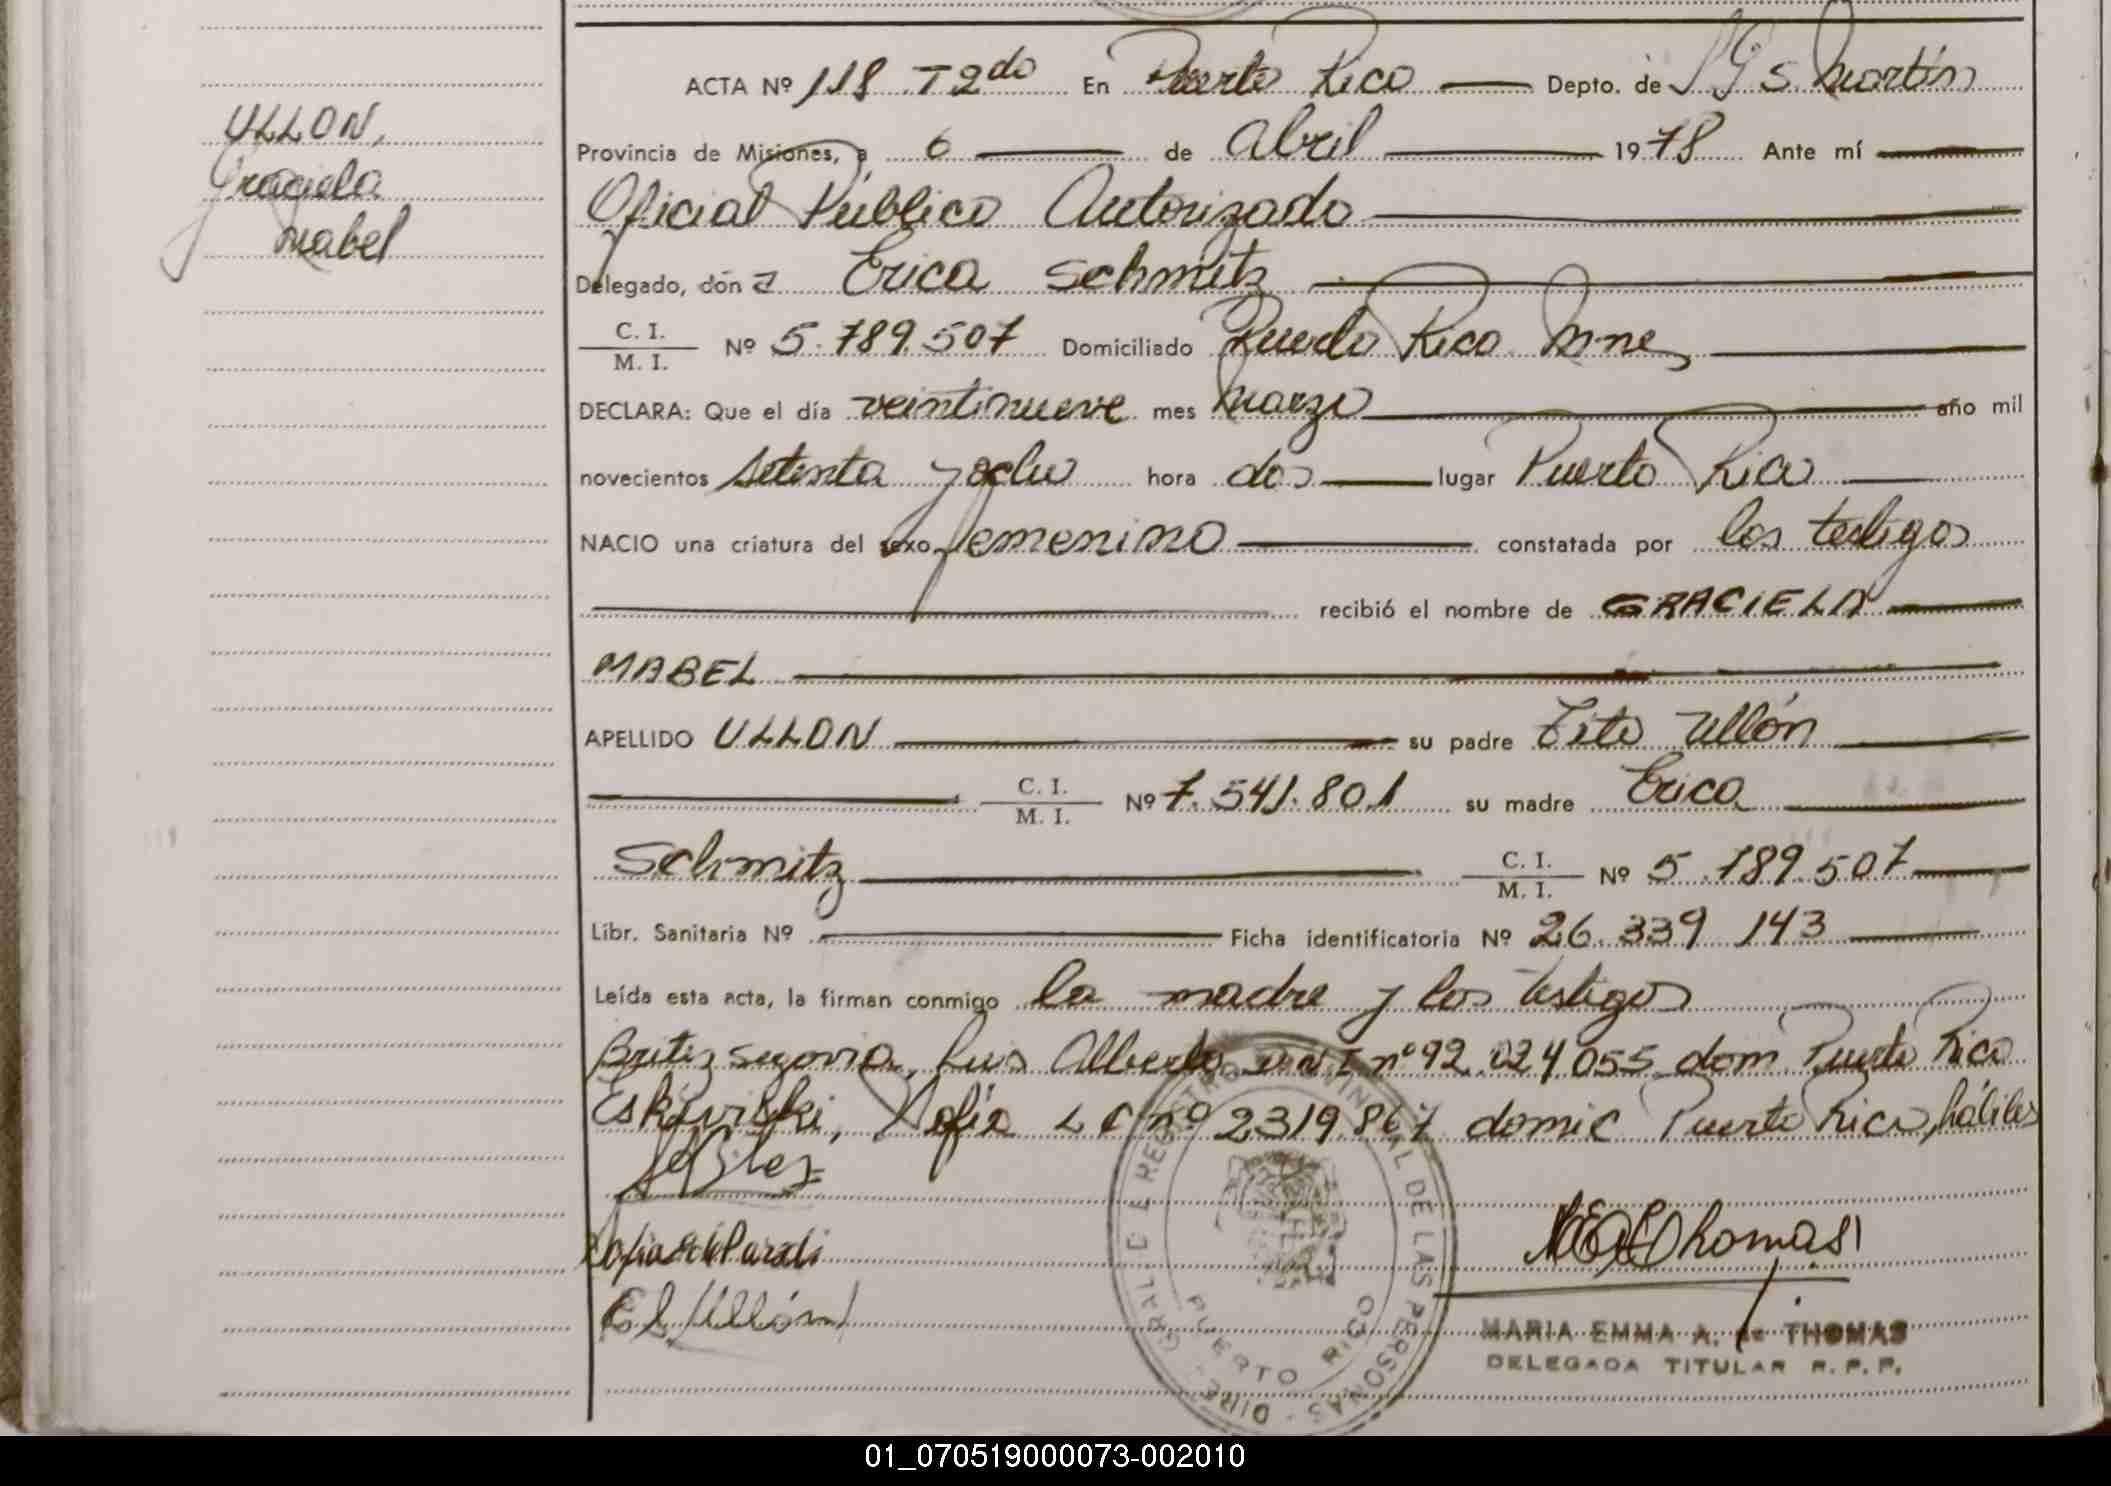 ULLON,
Graciela
Mabel
ACTA Nº 118 T 2do En Puerto Rico Depto. de L G S. Martín
Provincia de Misiones, a 6 de Abril 1978 Ante mí
Oficial Público Autorizado
Delegado, don a Erica Schmitz
C. I.
M. I. Nº 5.789.507 Domiciliado Puerto Rico Mnes
DECLARA: Que el día veintinueve mes Marzo año mil
novecientos setenta y ocho hora dos lugar Puerto Rico
NACIO una criatura del sexo femenino constatada por los testigos
recibió el nombre de GRACIELA
MABEL
APELLIDO ULLON su padre Tito Ullón
C. I.
M. I. Nº 7.541.801 su madre Erica
Schmitz C. I.
M. I. Nº 5.789.507
Libr. Sanitaria Nº Ficha identificatoria Nº 26.339 143
Leída esta acta, la firman conmigo la madre y los testigos
Britez Segovia, Luis Alberto D N I nº 92.024 055 dom. Puerto Rico
Sofia L C nº 2319.867 domic Puerto Rico, hábiles
E S Ullón
MARIA EMMA A. de THOMAS
DELEGADA TITULAR R. P. P.
DIRE. GRAL. DE REGISTRO PROVINCIAL DE LAS PERSONAS
PUERTO RICO
01_070519000073-002010